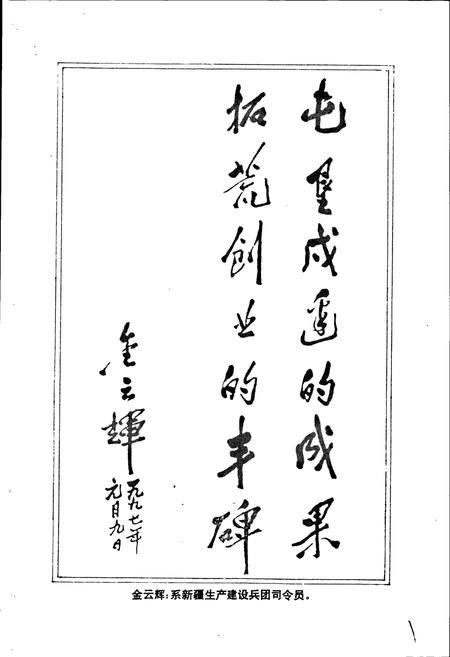 屯垦戍边的成果
拓荒创业的丰碑
金云輝
一九九七年
元月九日
金云辉：系新疆生产建设兵团司令员。